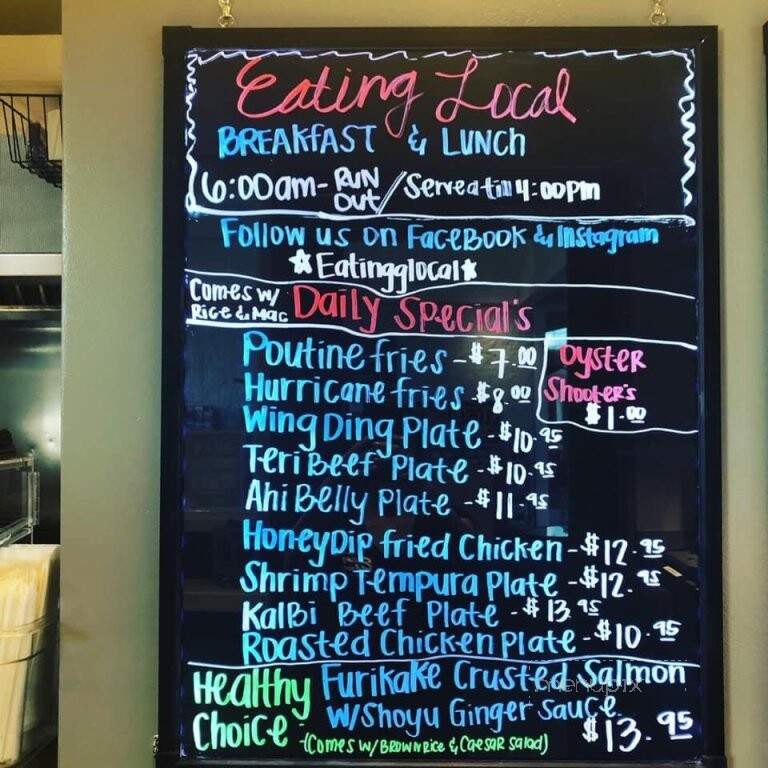 Eating Local
BREAKFAST & LUNCH
6:00am - RUN OUT / Served till 4:00pm
Follow us on Facebook & Instagram
☆Eatingglocal☆
Comes w/ Rice & Mac
Daily Special's
Poutine fries - $7.00
Hurricane fries - $8.00
Oyster Shooter's $1.00
Wing Ding Plate - $10.95
Teri Beef Plate - $10.95
Ahi Belly Plate - $11.95
Honey Dip fried Chicken - $12.95
Shrimp Tempura Plate - $12.95
Kalbi Beef Plate - $13.95
Roasted Chicken Plate - $10.95
Healthy Choice -
Furikake Crusted Salmon
w/Shoyu Ginger Sauce
(Comes w/ Brown Rice & Caesar Salad)
$13.95
menupix